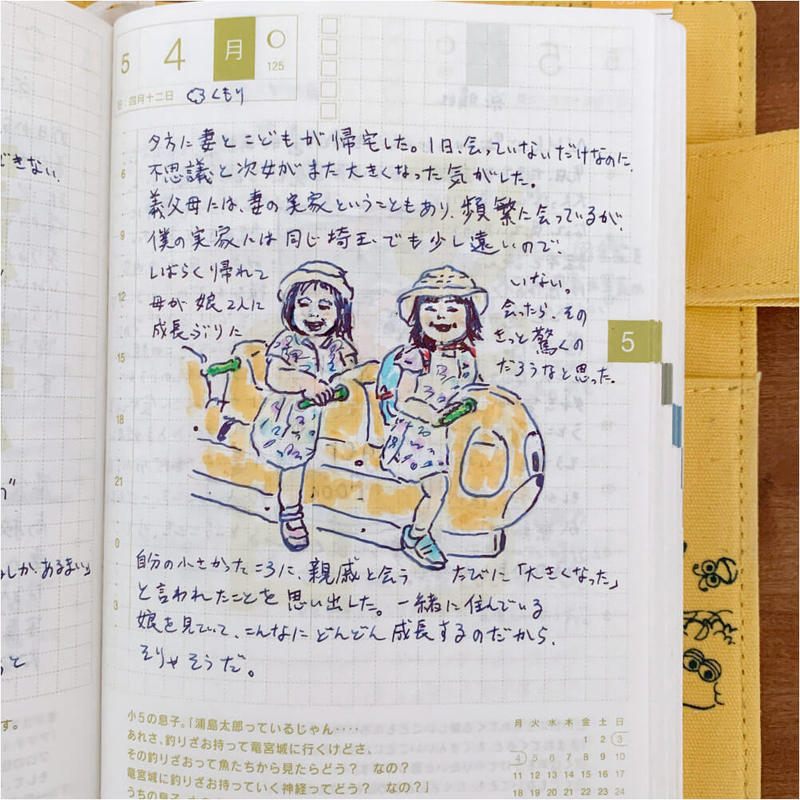 5 4 月
125
四月十二日 くもり
夕方に妻とこどもが帰宅した。1日、会っていないだけなのに、
不思議と次女がまた大きくなった気がした。
義父母には、妻の実家ということもあり、頻繁に会っているが、
僕の実家には同じ埼玉でも少し遠いので
しばらく帰れて いない。
母が娘2人に 会ったら、その
成長ぶりに きっと驚くの
だろうなと思った。
6
9
12
15
18
21
0
3
5
自分の小さかったころに、親戚と会う たびに「大きくなった」
と言われたことを思い出した。一緒に住んでいる
娘を見ていて、こんなにどんどん成長するのだから、
そりゃそうだ。
小5の息子。「浦島太郎っているじゃん‥‥
あれさ、釣りざお持って竜宮城に行くけどさ、
その釣りざおって魚たちから見たらどう? なの?
竜宮城に釣りざお持っていく神経ってどう? なの?」
月 火 水 木 金 土 日
1 2 3
4 5 6 7 8 9 10
11 12 13 14 15 16 17
18 19 20 21 22 23 24
できない。
しか、あるまい」
す。